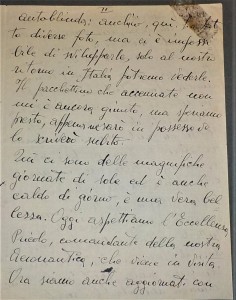 autoblindo; anch'io, qui, ho fat
to diverse foto, ma ci è impos
bile di svilupparle, solo al nostro
ritorno in Italia potremo vederle.
Il pacchettino che accennate non
mi è ancora giunto, ma speriamo
presto, appena verrà in possesso ve
lo scriverò subito.
Qui ci sono delle magnifiche
giornate di sole ed è anche
caldo di giorno, è una vera bel
lezza. Oggi aspettiamo l'Eccellenza
comandante della nostra
Aeronautica, che viene in visita.
Ora siamo anche aggiornati con